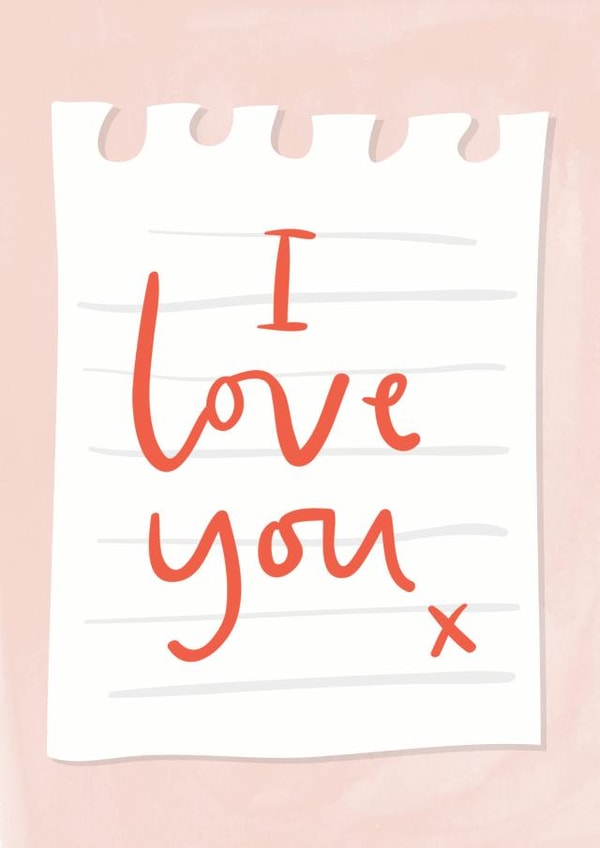 I
love
you
x